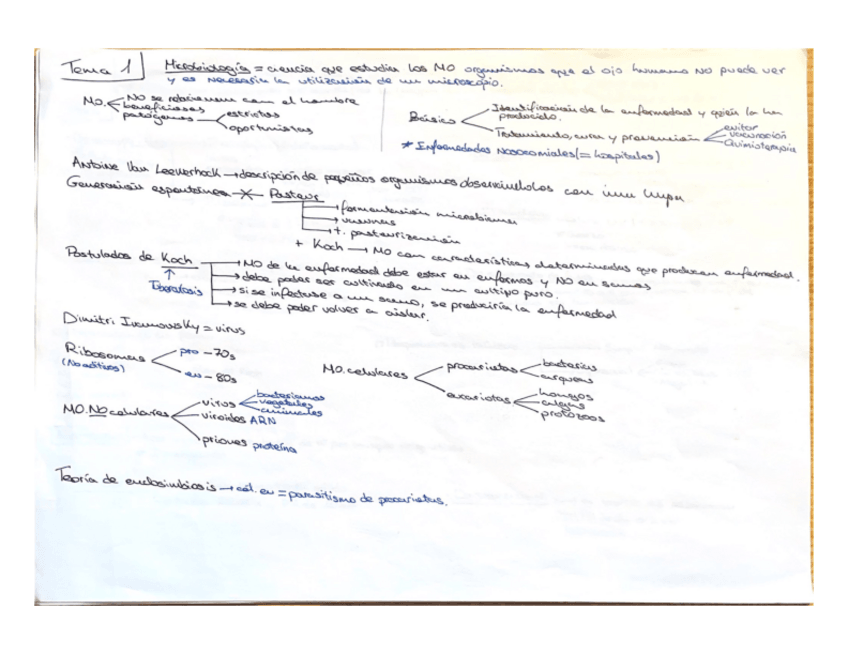 Tema 1
Microbiología = ciencia que estudia los MO organismos que el ojo humano NO puede ver
y es necesaria la utilización de un microscopio.
MO.
NO se relacionan con el hombre
beneficiosos
patógenos
estrictos
oportunistas
Básico
Identificación de la enfermedad y quién la ha
producido.
Tratamiento, cura y prevención
evitar
vacunación
Quimioterapia
* Enfermedades Nosocomiales (= hospitales)
Antoine Van Leewenhock → descripción de pequeños organismos observándolos con una lupa
Generación espontánea ✗ Pasteur
→ fermentación microbiana
→ vacunas
→ t. pasteurización
+ Koch → MO con características determinadas que producen enfermedad.
Postulados de Koch
↑
Tuberculosis
→ MO de la enfermedad debe estar en enfermos y NO en sanos
→ debe poder ser cultivado en un cultivo puro.
→ si se infectase a un sano, se produciría la enfermedad
→ se debe poder volver a aislar.
Dimitri Ivanowsky = virus
Ribosomas
(No aditivos)
pro - 70s
eu - 80s
MO. celulares
procariotas
bacterias
arqueas
eucariotas
hongos
algas
protozoos
MO. NO celulares
virus
bacterianos
vegetales
animales
viroides ARN
priones proteína
Teoría de endosimbiosis → cél. eu = parasitismo de procariotas.